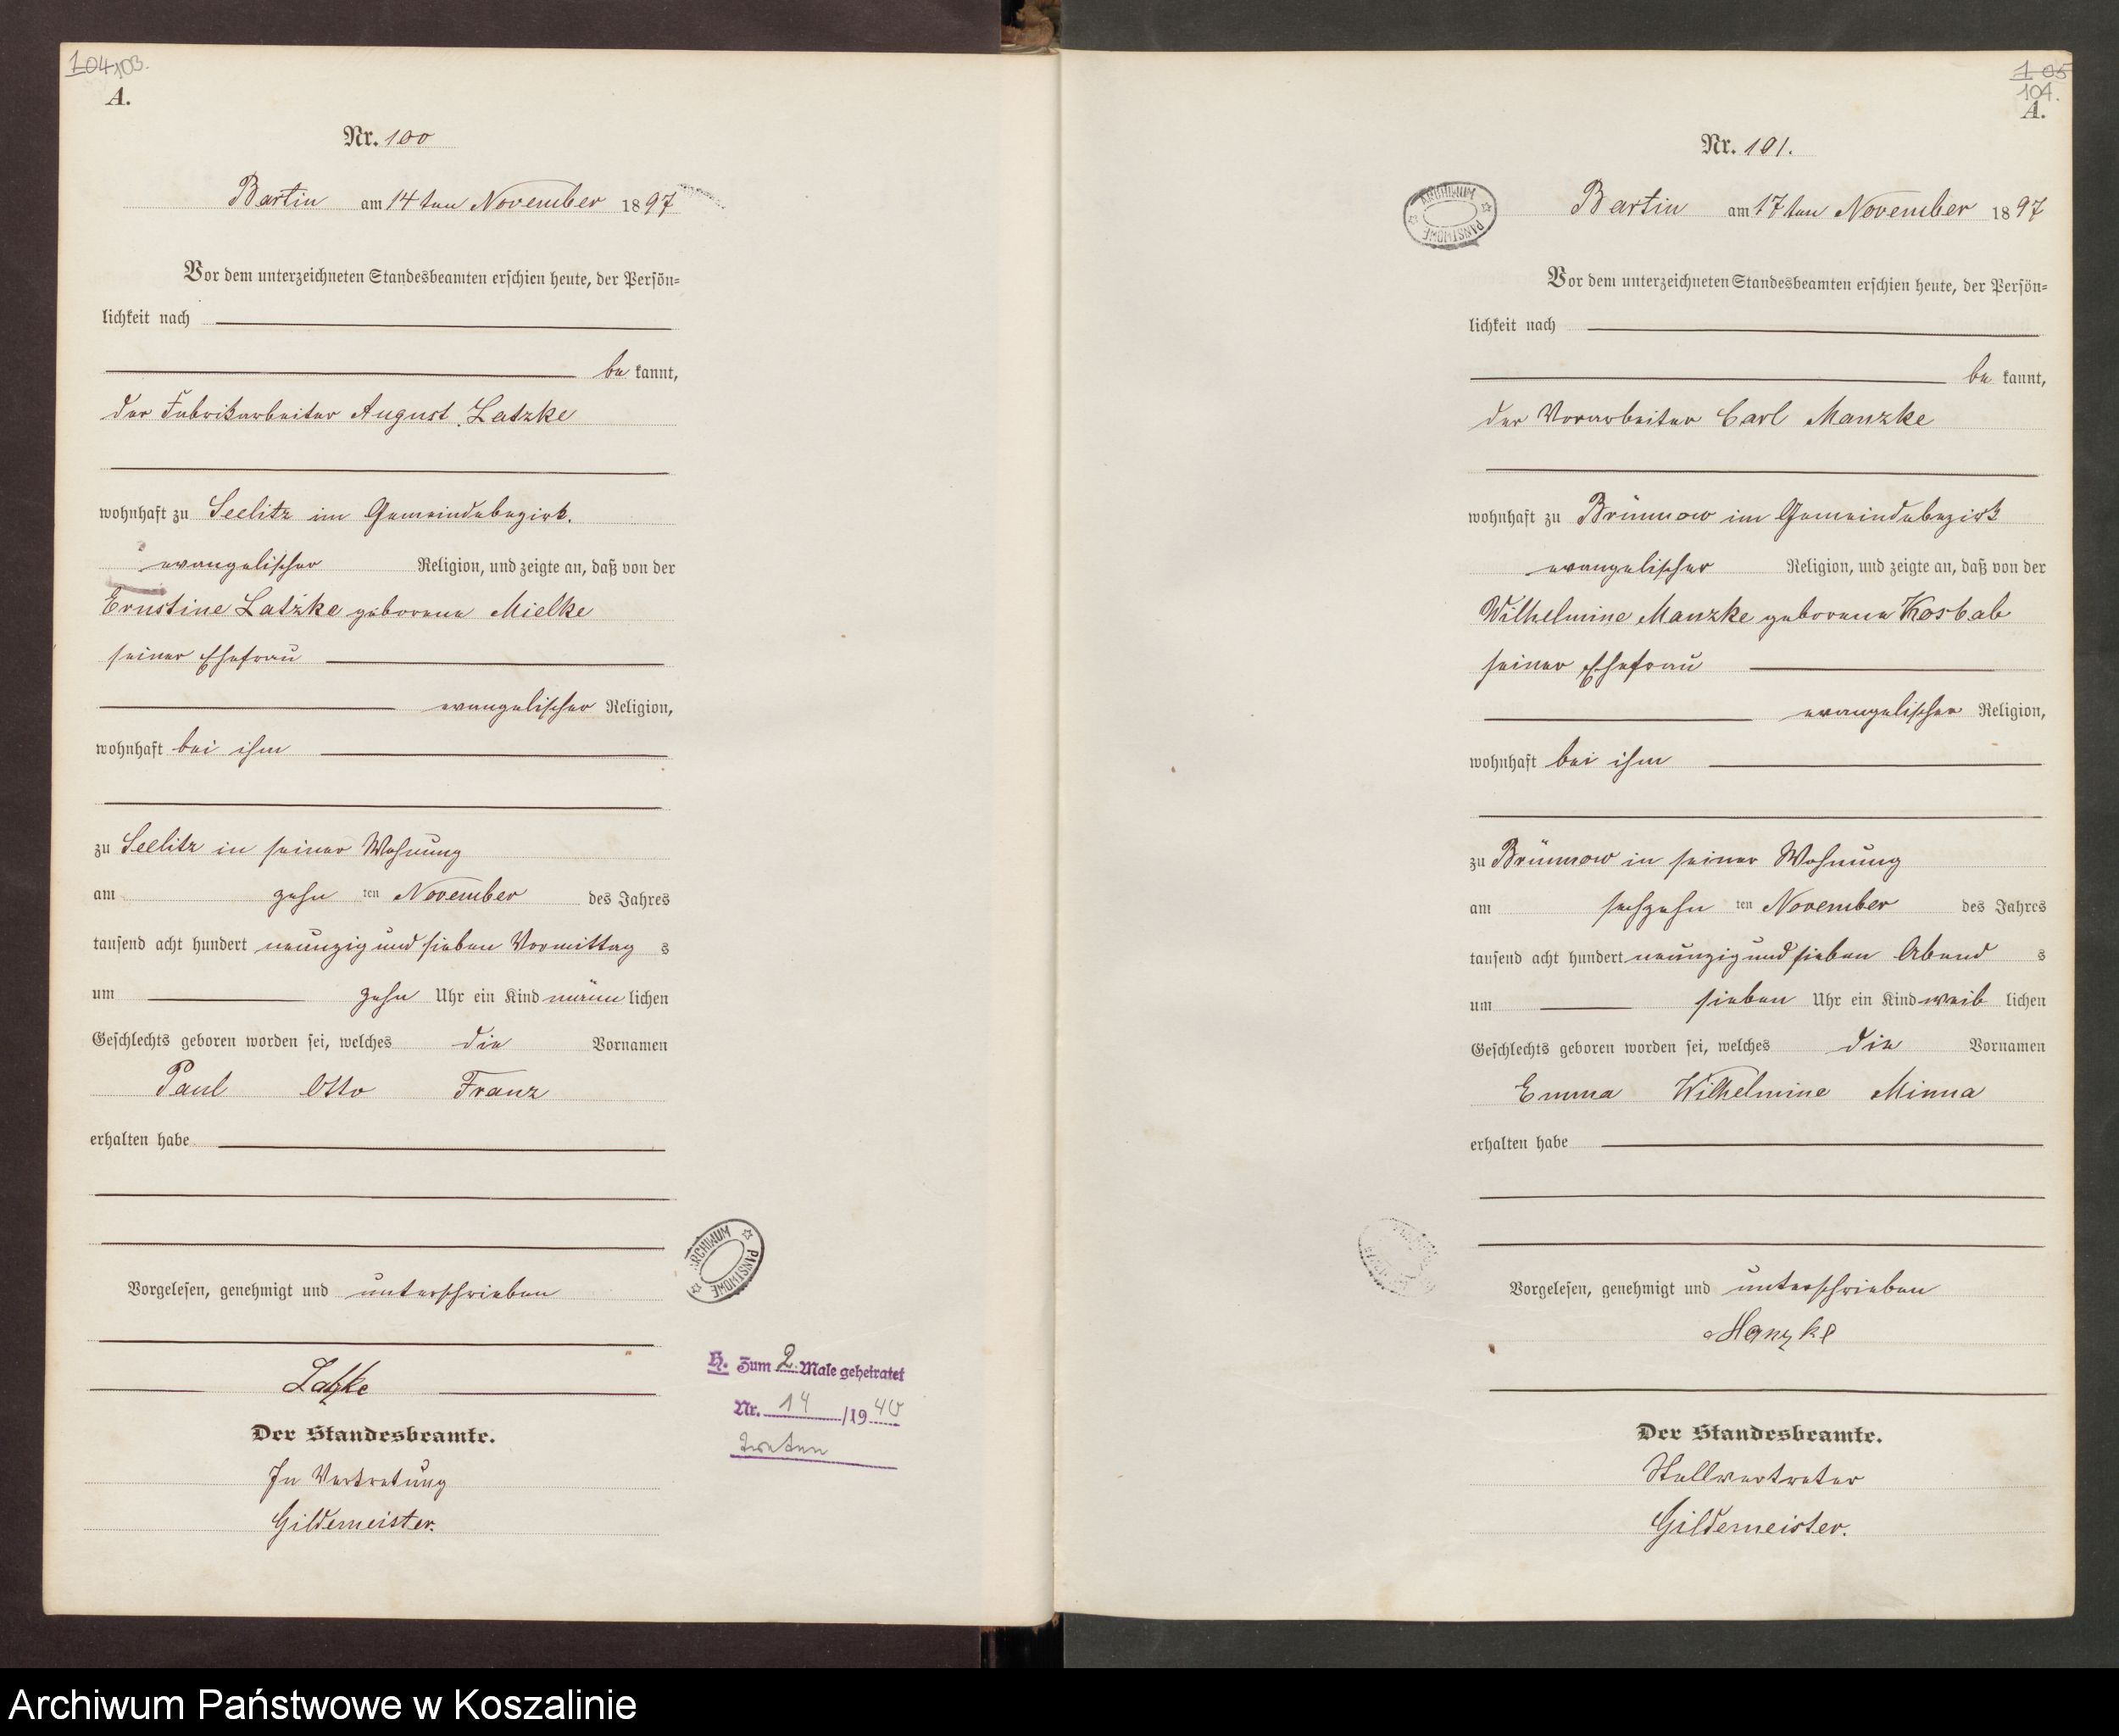 104 103.
A.
Nr. 100
Bartin am 14ten November 1897
Vor dem unterzeichneten Standesbeamten erschien heute, der Persön=
lichkeit nach
be kannt,
der Fabrikarbeiter August Latzke
wohnhaft zu Seelitz im Gemeindebezirk.
evangelischer Religion, und zeigte an, daß von der
Ernstine Latzke geborene Mielke
seiner Ehefrau
evangelischer Religion,
wohnhaft bei ihm
zu Seelitz in seiner Wohnung
am zehn ten November des Jahres
tausend acht hundert neunzig und sieben Vormittag s
um zehn Uhr ein Kind männ lichen
Geschlechts geboren worden sei, welches die Vornamen
Paul Otto Franz
erhalten habe
Vorgelesen, genehmigt und unterschrieben
Latzke
Der Standesbeamte.
In Vertretung
Gildemeister.
ARCHIWUM PAŃSTWOWE
H. Zum 2. Male geheiratet
Nr. 14 /1940
105
104.
A.
Nr. 101.
ARCHIWUM PAŃSTWOWE
Bartin am 17ten November 1897
Vor dem unterzeichneten Standesbeamten erschien heute, der Persön=
lichkeit nach
be kannt,
der Vorarbeiter Carl Manzke
wohnhaft zu Brünnow im Gemeindebezirk
evangelischer Religion, und zeigte an, daß von der
Wilhelmine Manzke geborene Kosbab
seiner Ehefrau
evangelischer Religion,
wohnhaft bei ihm
zu Brünnow in seiner Wohnung
am sechzehn ten November des Jahres
tausend acht hundert neunzig und sieben Abend s
um sieben Uhr ein Kind weib lichen
Geschlechts geboren worden sei, welches die Vornamen
Emma Wilhelmine Minna
erhalten habe
Vorgelesen, genehmigt und unterschrieben
Manzke
Der Standesbeamte.
Stellvertreter
Gildemeister.
Archiwum Państwowe w Koszalinie